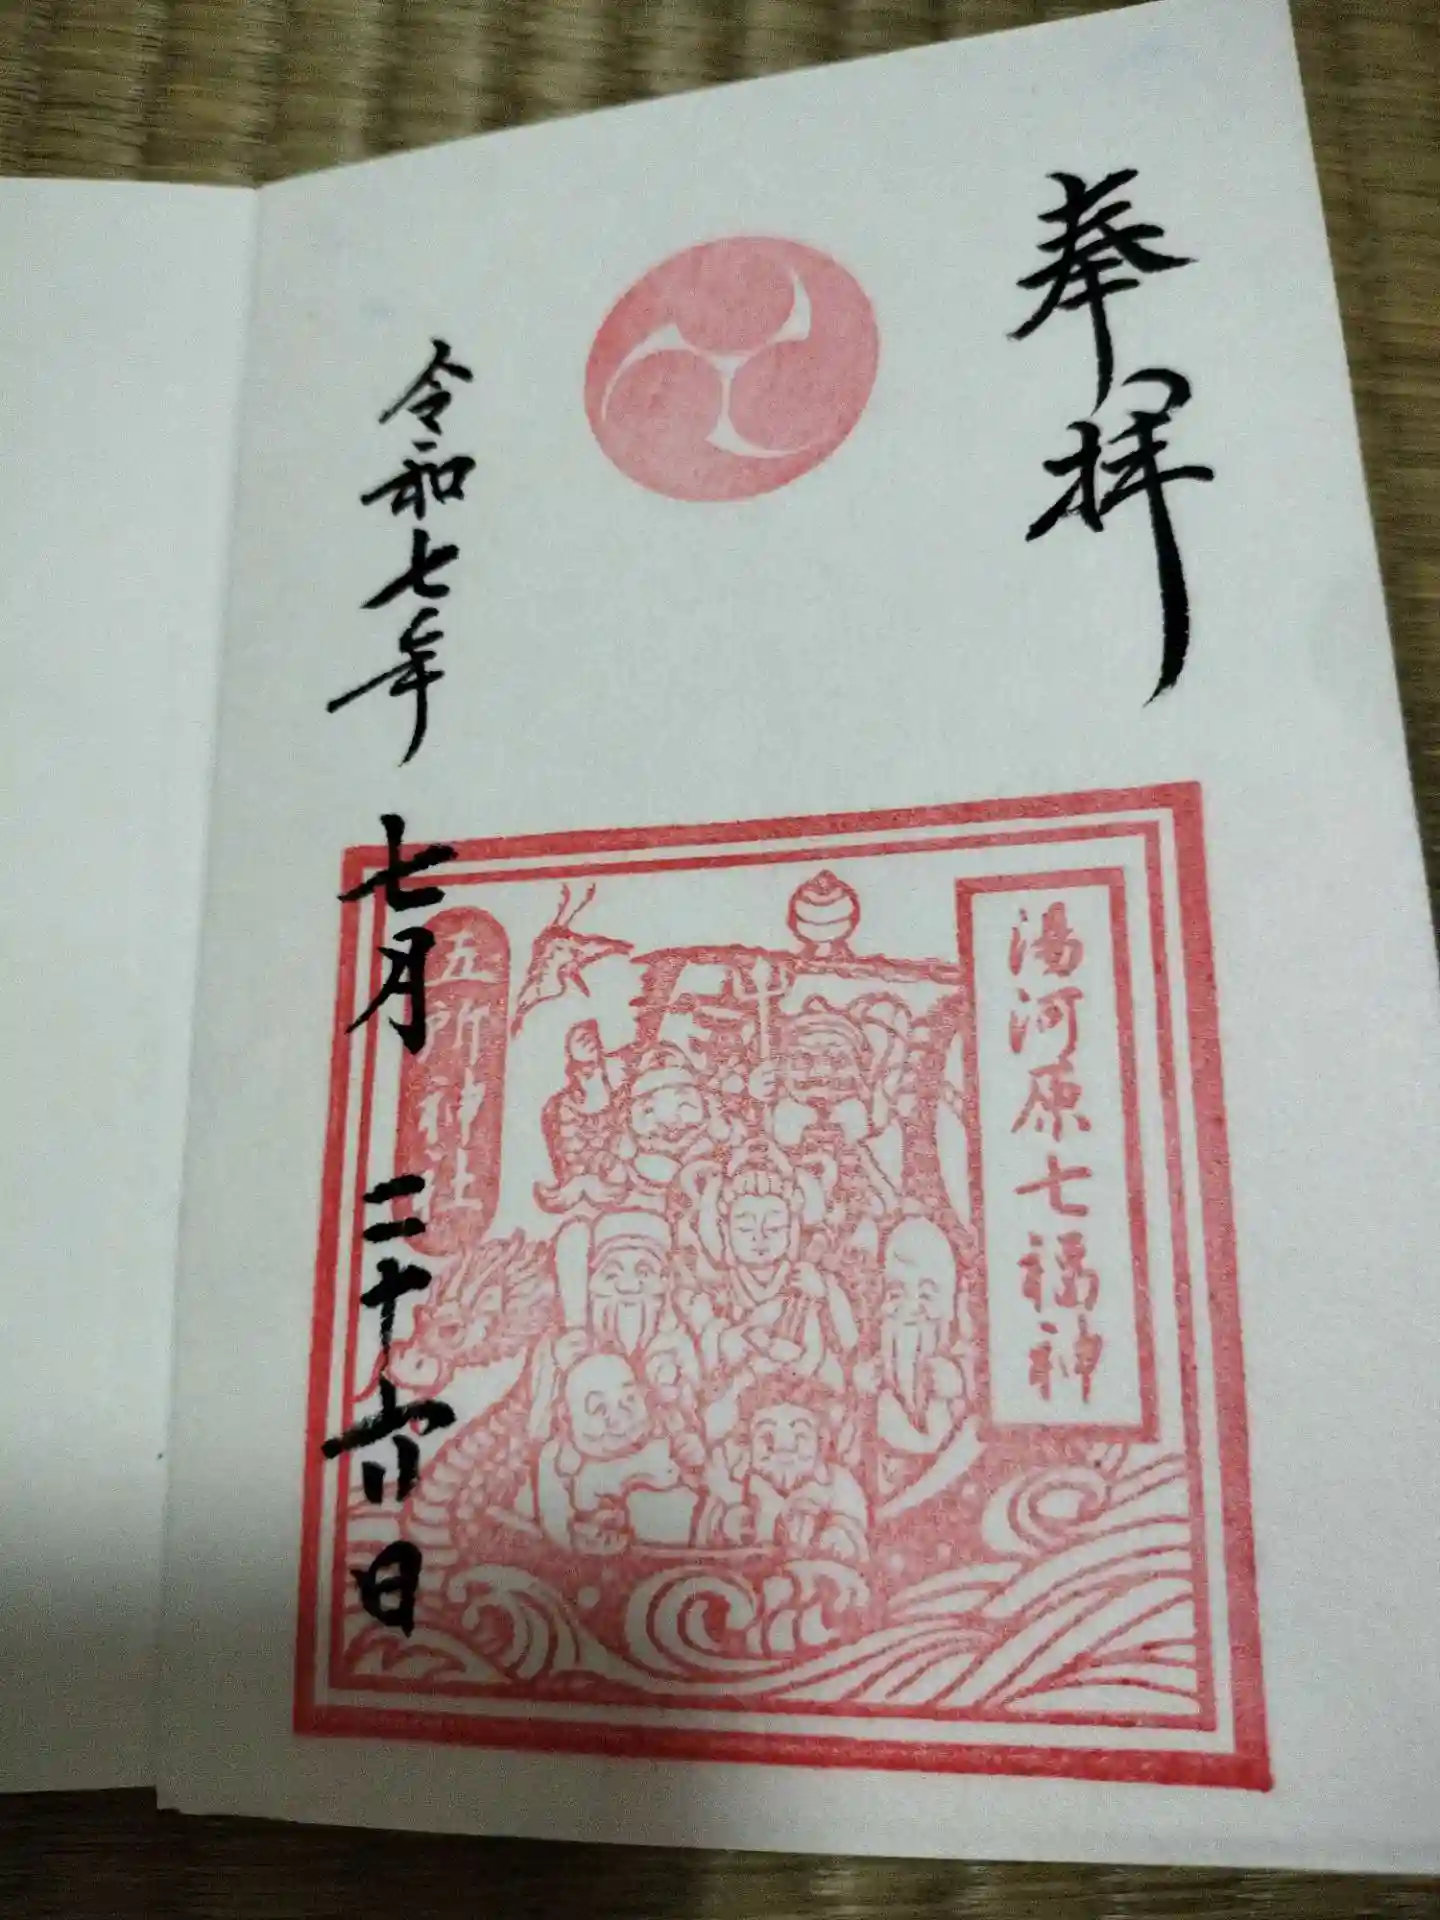 奉拝
湯河原七福神
五所神社
令和七年
七月
二十六日